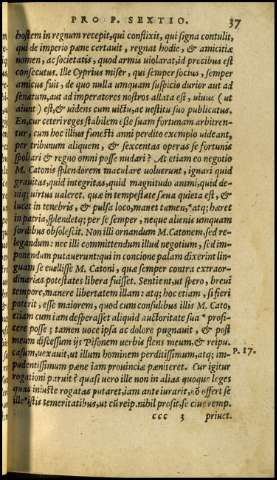 PRO P. SEXTIO. 37
hostem in regnum recepit, qui conflixit, qui signa contulit,
qui de imperio pæne certauit, regnat hodie, & amicitiæ
nomen, ac societatis, quod armis uiolarat, id precibus est
consecutus. Ille Cyprius miser, qui semper socius, semper
amicus fuit, de quo nulla umquam suspicio durior aut ad
senatum, aut ad imperatores nostros allata est, uiuus (ut
aiunt) est, & uidens cum uictu, ac uestitu suo publicatus.
En, cur ceteri reges stabilem esse suam fortunam arbitren-
tur, cum hoc illius funesti anni perdito exemplo uideant,
per tribunum aliquem, & sexcentas operas se fortunis
spoliari & regno omni posse nudari? At etiam eo negotio
M. Catonis splendorem maculare uoluerunt, ignari quid
grauitas, quid integritas, quid magnitudo animi, quid de-
niq; uirtus ualeret, quæ in tempestate sæua quieta est, &
lucet in tenebris, & pulsa loco, manet tamen, atq; hæret
in patria, splendetq; per se semper, neque alienis umquam
sordibus obsolescit. Non illi ornandum M. Catonem, sed re-
legandum: nec illi committendum illud negotium, sed im-
ponendum putauerunt: qui in concione palam dixerint lin-
guam se euellisse M. Catoni, quæ semper contra extraor-
dinarias potestates libera fuisset. Sentient, ut spero, breui
tempore, manere libertatem illam: atq; hoc etiam, si fieri
poterit, esse maiorem, quod cum consulibus illis M. Cato,
etiam cum iam desperasset aliquid auctoritate sua profi-
tere posse; tamen uoce ipsa ac dolore pugnauit, & post
meum discessum ijs Pisonem uerbis flens meum, & reipu.
casum, uexauit, ut illum hominem perditissimum, atq; im-
P. 17.
pudentissimum pæne iam prouinciæ pæniteret. Cur igitur
rogationi paruit? quasi uero ille non in alias quoque leges
quas iniuste rogatas putaret, iam ante iurarit, & offert se
ille istis temeritatibus, ut cũ reip. nihil prosit, se ciue remp.
ccc 3 priuet.